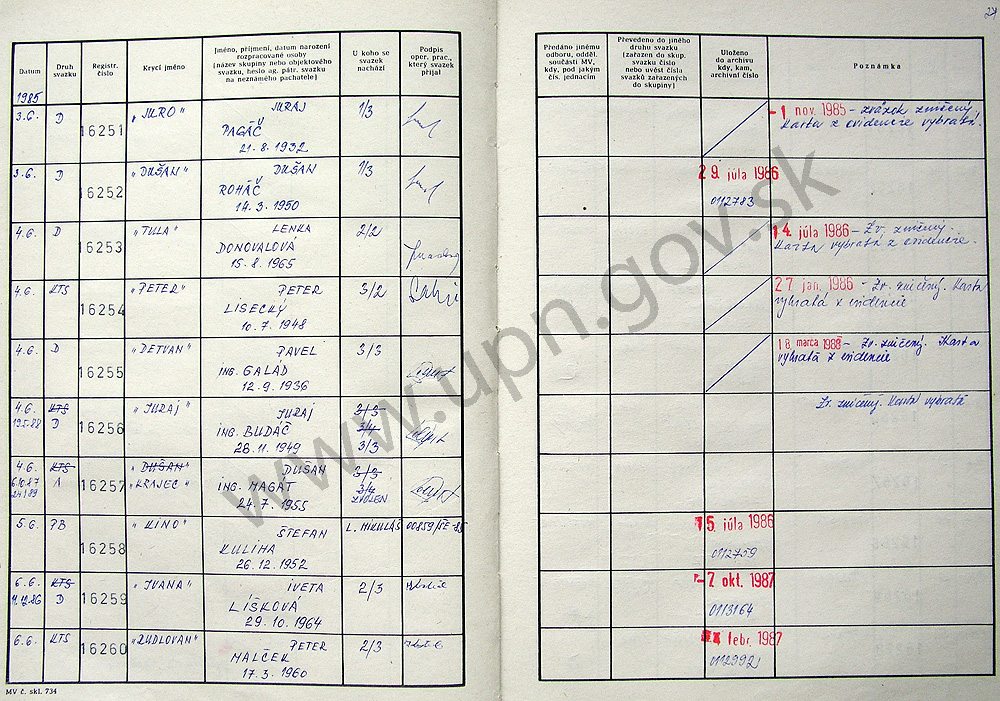 Datum
Druh svazku
Registr. číslo
Krycí jméno
Jméno, příjmení, datum narození
rozpracované osoby
(název skupiny nebo objektového
svazku, heslo ag. pátr. svazku
na neznámého pachatele)
U koho se
svazek
nachází
Podpis
oper. prac.,
který svazek
přijal
Předáno jinému
odboru, odděl.
součásti MV,
kdy, pod jakým
čís. jednacím
Převedeno do jiného
druhu svazku
(zařazen do skup.
svazku číslo
nebo uvést čísla
svazků zařazených
do skupiny)
Uloženo
do archivu
kdy, kam,
archivní číslo
Poznámka
1985
3.6. D 16251 "JURO" JURAJ 1/3
PAGÁČ
21. 8. 1932
1 nov. 1985 - zväzok zničený.
Karta z evidencie vybratá.
3.6. D 16252 "DUŠAN" DUŠAN 1/3
ROHÁČ
14. 3. 1950
29. júla 1986
0112783
4.6. D 16253 "TULA" LENKA 2/2
DONOVALOVÁ
15. 8. 1965
14. júla 1986 - Zv. zničený.
Karta vybratá z evidencie.
4.6. KTS 16254 "PETER" PETER 3/2
LISECKÝ
10. 7. 1948
27 jan. 1986 - Zv. zničený. Karta
vybratá z evidencie
4.6. D 16255 "DETVAN" PAVEL 3/3
ING. GALÁD
12. 9. 1936
18. marca 1988 - Zv. zničený. Karta
vybratá z evidencie
4.6. KTS 16256 "JURAJ" JURAJ 3/3
19.5.88 D ING. BUDÁČ 3/4
26. 11. 1949 3/3
Zv. zničený. Karta vybratá
4.6. KTS 16257 "DUŠAN" DUŠAN 3/3
6.10.87 A "KRAJEC" ING. MAGÁT 3/4
24. 7. 1955 ZVOLEN
5.6. PB 16258 "KINO" ŠTEFAN L. MIKULÁŠ
KULIHA
26. 12. 1952
15. júla 1986
0112759
6.6. KTS 16259 "IVANA" IVETA 2/3
11.12.86 D LÍŠKOVÁ
29. 10. 1964
-7. okt. 1987
0113164
6.6. KTS 16260 "RUDLOVAN" PETER 2/3
MALČEK
17. 3. 1960
febr. 1987
0112992
MV č. skl. 734
www.upn.gov.sk